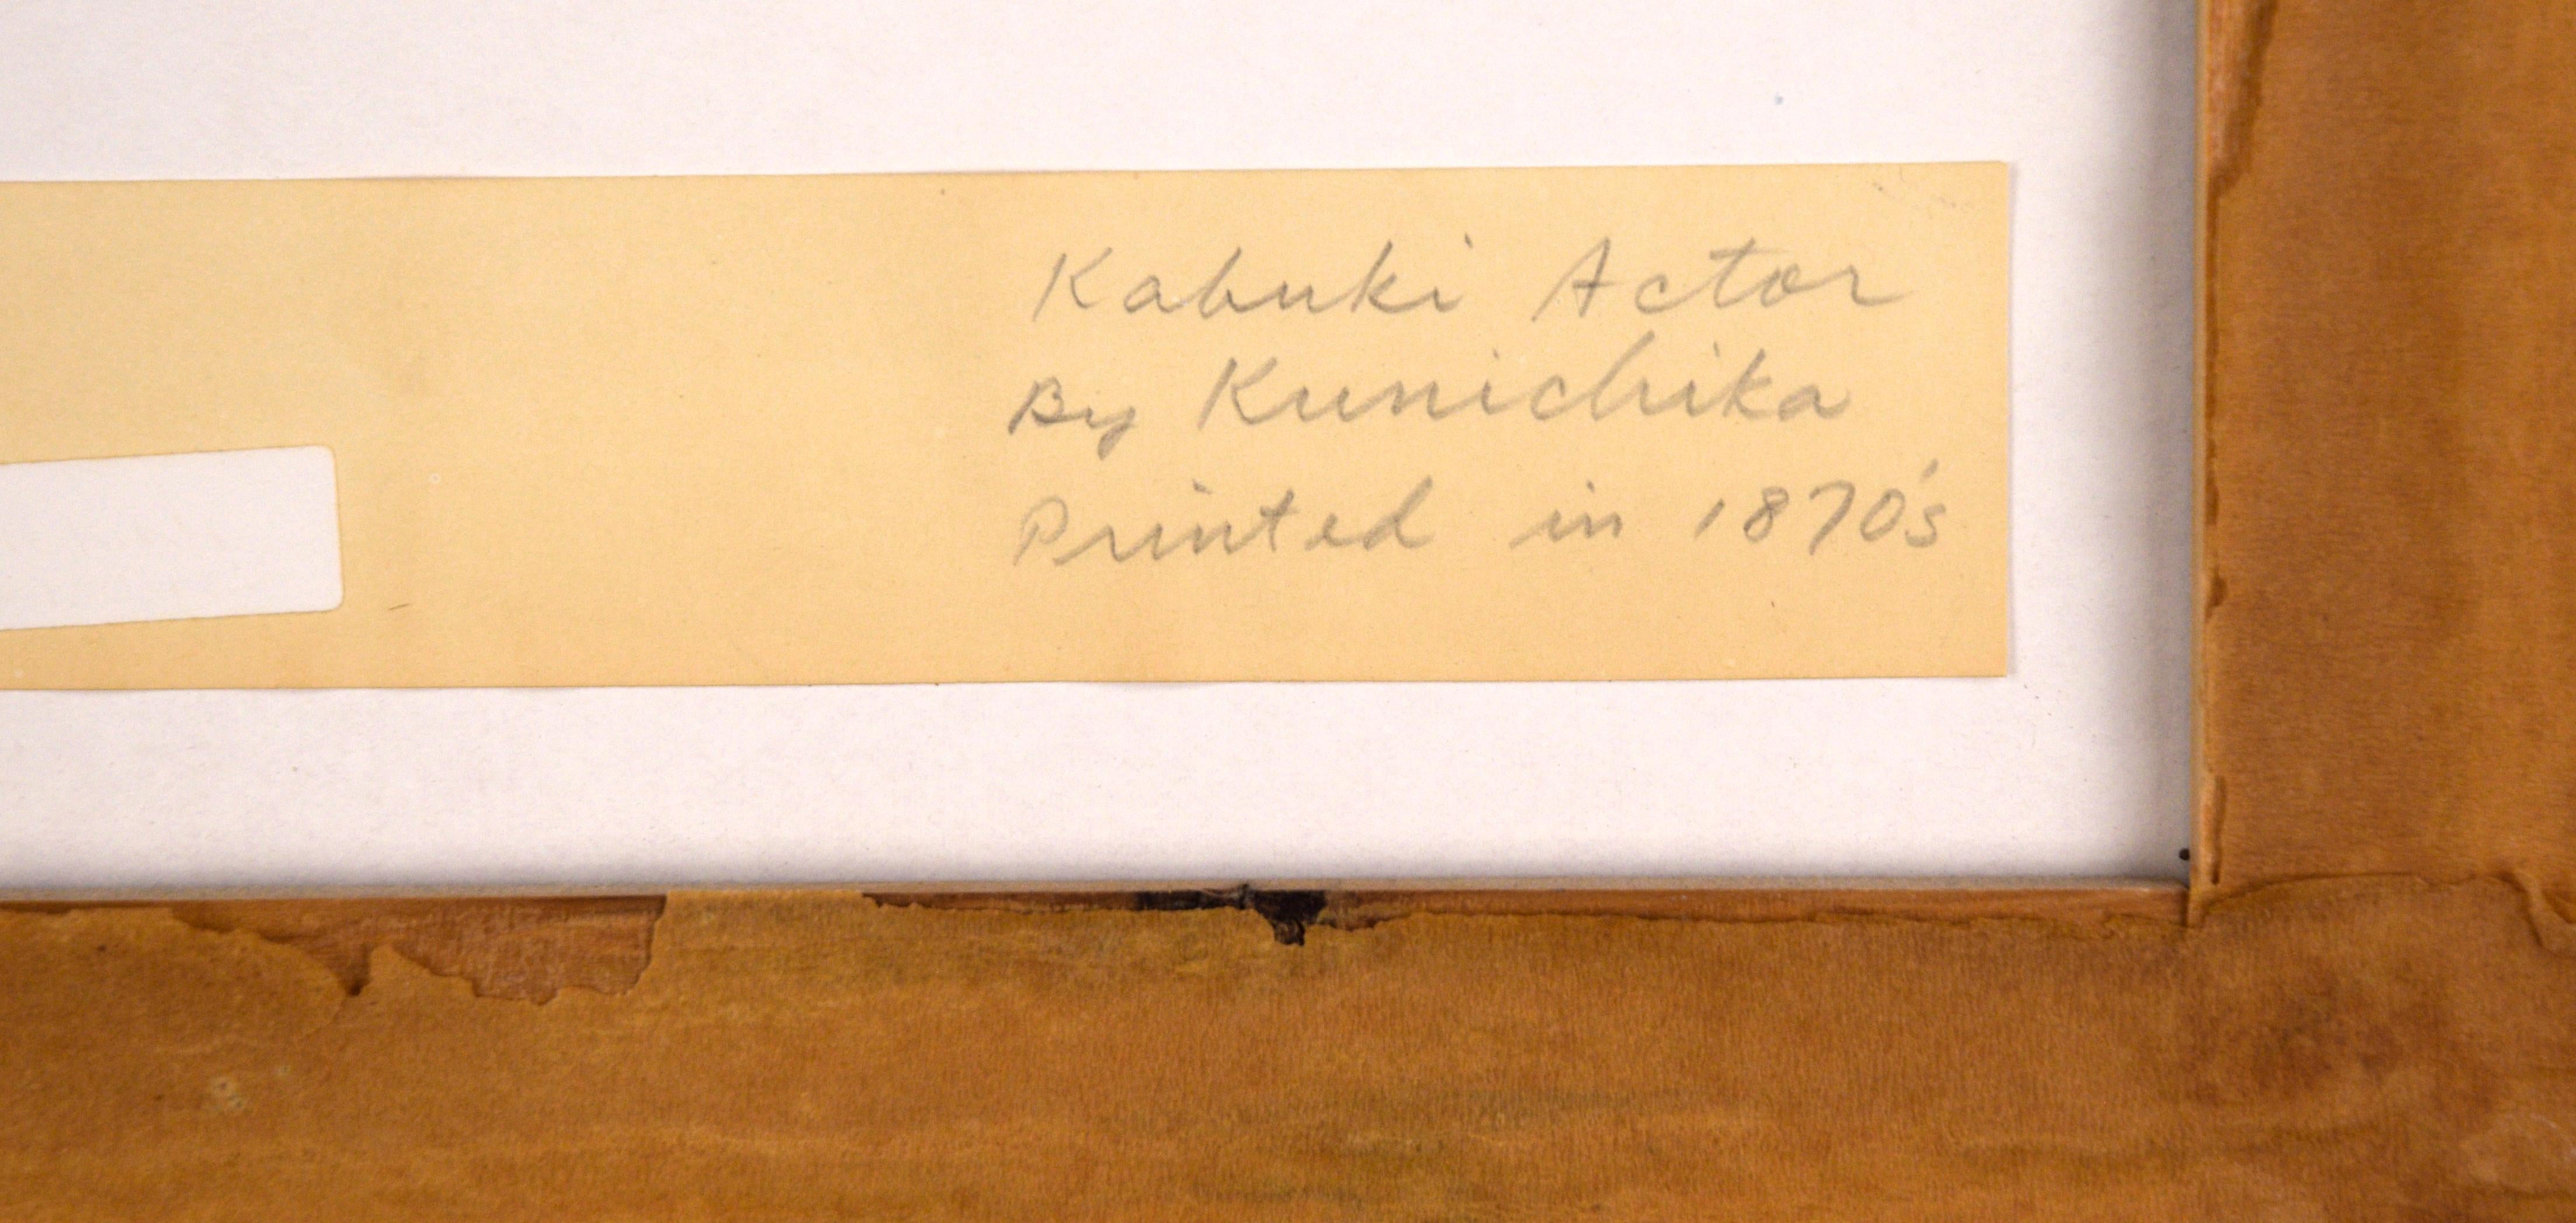 Kabuki Actor
By Kunichika
Printed in 1870's